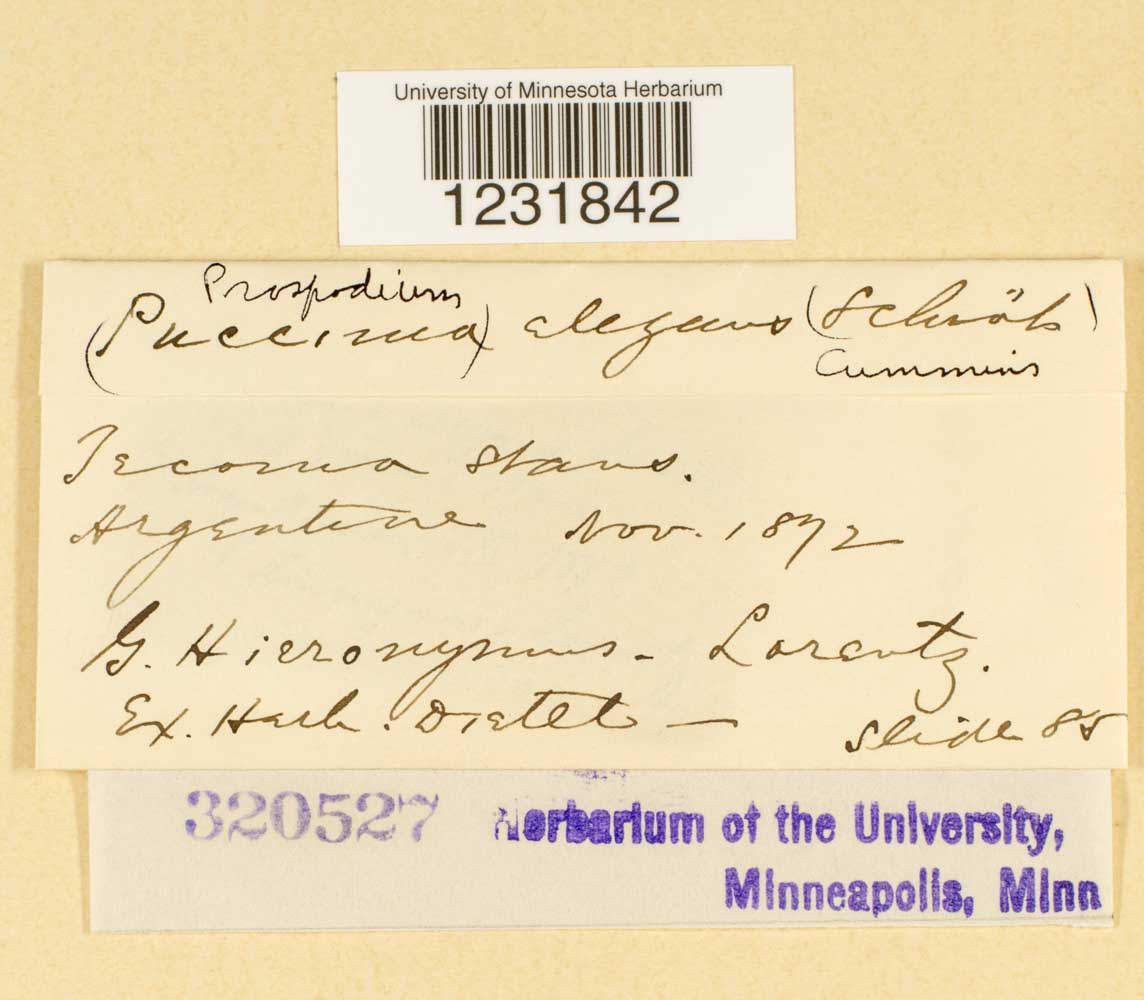 University of Minnesota Herbarium
1231842
Prospodium
(Puccinia) elegans (Schröt)
Cummins
Tecoma stans.
Argentine Nov. 1872
G. Hieronymus - Lorentz.
Ex. Herb. Dietel — slide 85
320527 Herbarium of the University,
Minneapolis, Minn